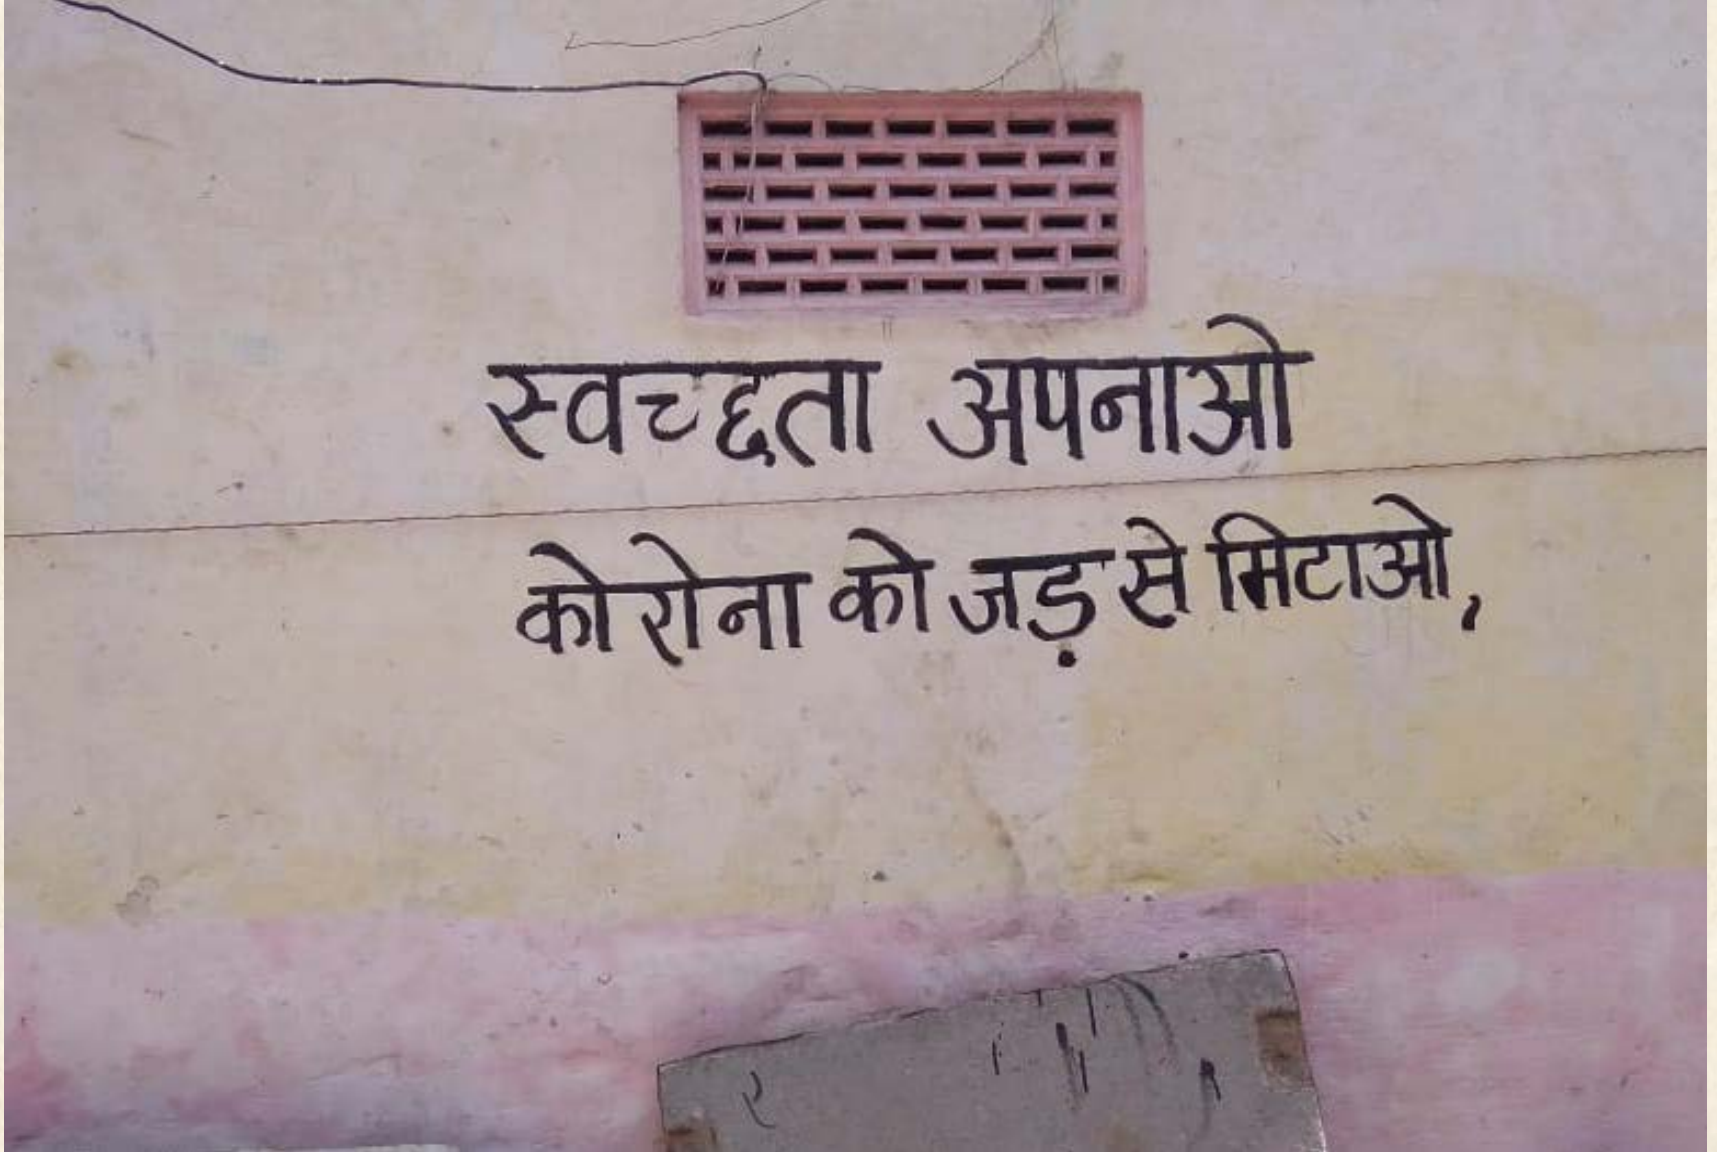 स्वच्छता अपनाओ
कोरोना को जड़ से मिटाओ,